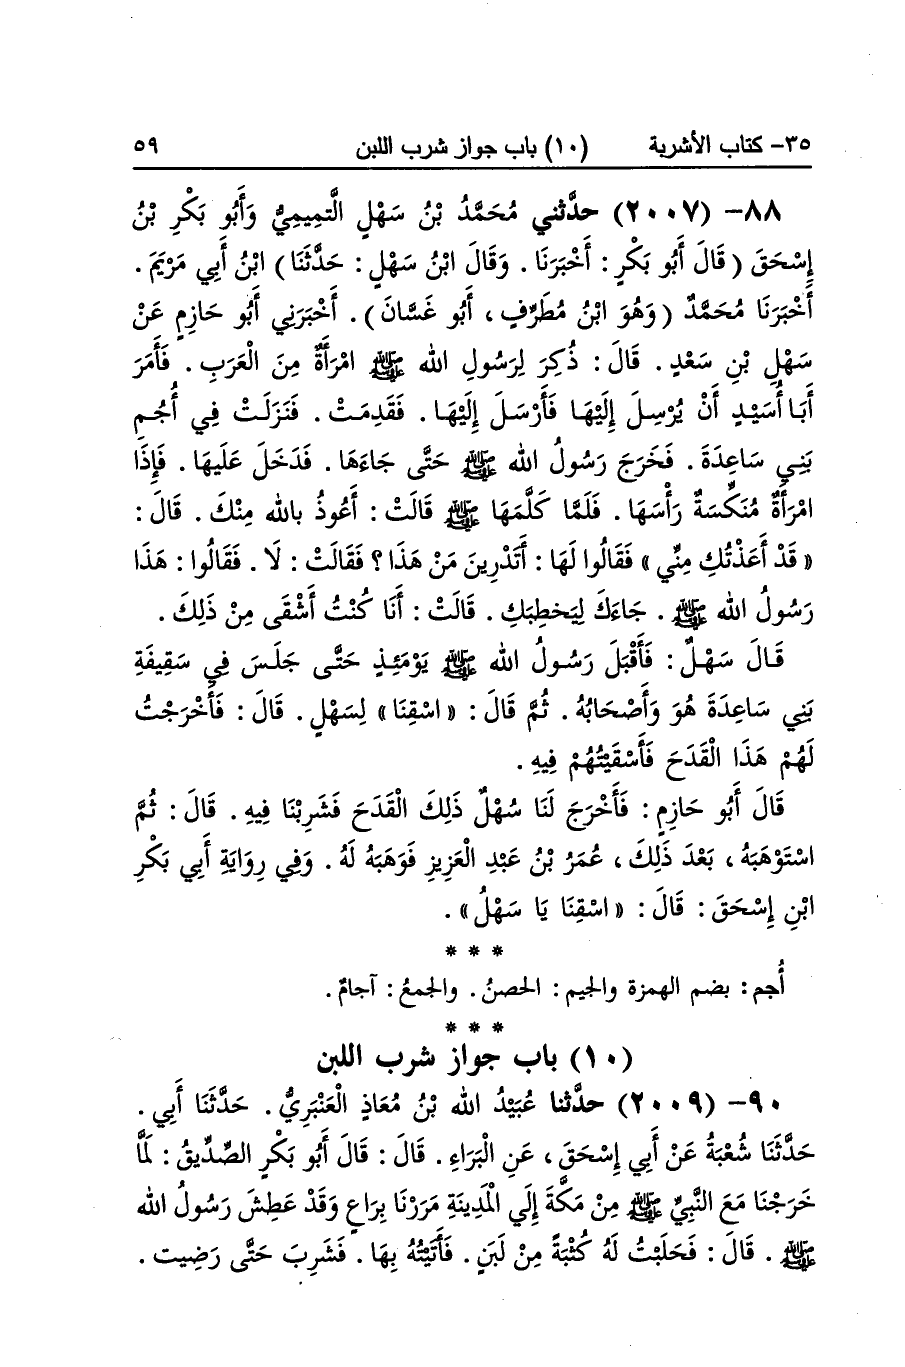 ٣٥- كتاب الأشربة (١٠) باب جواز شرب اللبن ٥٩
٨٨- (٢٠٠٧) حدَّثني مُحَمَّدُ بْنُ سَهْلٍ الَّتمِيمِيُّ وَأَبُو بَكْرِ بْنُ
إِسْحَقَ ( قَالَ أَبُو بَكْرٍ : أَخْبَرَنَا . وَقَالَ ابْنُ سَهْلٍ : حَدَّثَنَا ) ابْنُ أَبِي مَرْيَمَ .
أَخْبَرَنَا مُحَمَّدٌ ( وَهُوَ ابْنُ مُطَرِّفٍ ، أَبُو غَسَّانَ ) . أَخْبَرَنِي أَبُو حَازِمٍ عَنْ
سَهْلِ بْنِ سَعْدٍ . قَالَ : ذُكِرَ لِرَسُولِ الله ﷺ امْرَأَةٌ مِنَ الْعَرَبِ . فَأَمَرَ
أَبَا أُسَيْدٍ أَنْ يُرْسِلَ إِلَيْهَا فَأَرْسَلَ إِلَيْهَا . فَقَدِمَتْ . فَنَزَلَتْ فِي أُجُمِ
بَنِي سَاعِدَةَ . فَخَرَجَ رَسُولُ الله ﷺ حَتَّى جَاءَهَا . فَدَخَلَ عَلَيهَا . فَإِذَا
امْرَأَةٌ مُنَكِّسَةٌ رَأْسَهَا . فَلَمَّا كَلَّمَهَا ﷺ قَالَتْ : أَعُوذُ بالله مِنْكَ . قَالَ :
« قَدْ أَعَذْتُكِ مِنِّي » فَقَالُوا لَهَا : أَتَدْرِينَ مَنْ هَذَا ؟ فَقَالَتْ : لَا . فَقَالُوا : هَذَا
رَسُولُ الله ﷺ . جَاءَكَ لِيَخطِبَكِ . قَالَتْ : أَنَا كُنْتُ أَشْقَى مِنْ ذَلِكَ .
قَالَ سَهْلٌ : فَأَقْبَلَ رَسُولُ الله ﷺ يَوْمَئِذٍ حَتَّى جَلَسَ فِي سَقِيفَةِ
بَنِي سَاعِدَةَ هُوَ وَأَصْحَابُهُ . ثُمَّ قَالَ : « اسْقِنَا » لِسَهْلٍ . قَالَ : فَأَخْرَجْتُ
لَهُمْ هَذَا الْقَدَحَ فَأَسْقَيْتُهُمْ فِيهِ .
قَالَ أَبُو حَازِمٍ : فَأَخْرَجَ لَنَا سُهْلٌ ذَلِكَ الْقَدَحَ فَشَرِبْنَا فِيهِ . قَالَ : ثُمَّ
اسْتَوْهَبَهُ ، بَعْدَ ذَلِكَ ، عُمَرُ بْنُ عَبْدِ الْعَزِيزِ فَوَهَبَهُ لَهُ . وَفِي رِوَايَةِ أَبِي بَكْرِ
ابْنِ إِسْحَقَ : قَالَ : « اسْقِنَا يَا سَهْلُ » .
* * *
أُجم : بضم الهمزة والجيم : الحصنُ . والجمعُ : آجامٌ .
* * *
(١٠) باب جواز شرب اللبن
٩٠- (٢٠٠٩) حدَّثنا عُبَيْدُ الله بْنُ مُعَاذٍ الْعَنْبَرِيُّ . حَدَّثَنَا أَبِي .
حَدَّثَنَا شُعْبَةُ عَنْ أَبِي إِسْحَقَ ، عَنِ الْبَرَاءِ . قَالَ : قَالَ أَبُو بَكْرٍ الصِّدِّيقُ : لَمَّا
خَرَجْنَا مَعَ النَّبِيِّ ﷺ مِنْ مَكَّةَ إِلَي الْمَدِينَةِ مَرَرْنَا بِرَاعٍ وَقَدْ عَطِشَ رَسُولُ الله
ﷺ . قَالَ : فَحَلَبْتُ لَهُ كُثْبَةً مِنْ لَبَنٍ . فَأَتَيْتُهُ بِهَا . فَشَرِبَ حَتَّى رَضِيت .